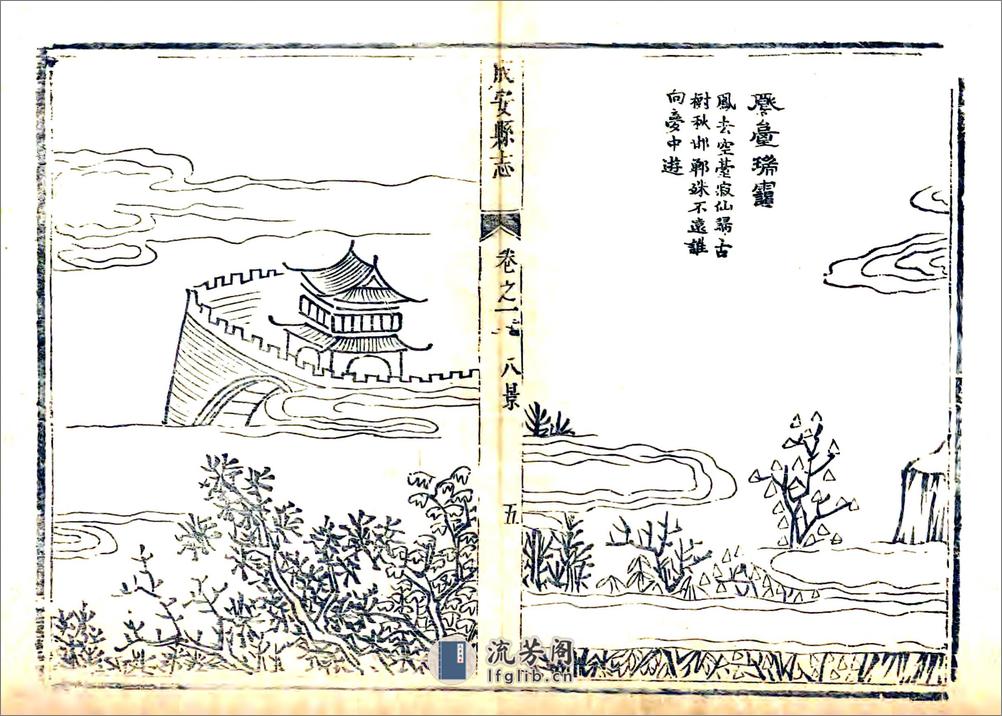 臺瑞靄
鳳去空臺寂仙歸古
樹秋邯鄲殊不遠誰
向夢中遊
成安縣志
卷之一
八景
五
流芳阁
lfglib.cn